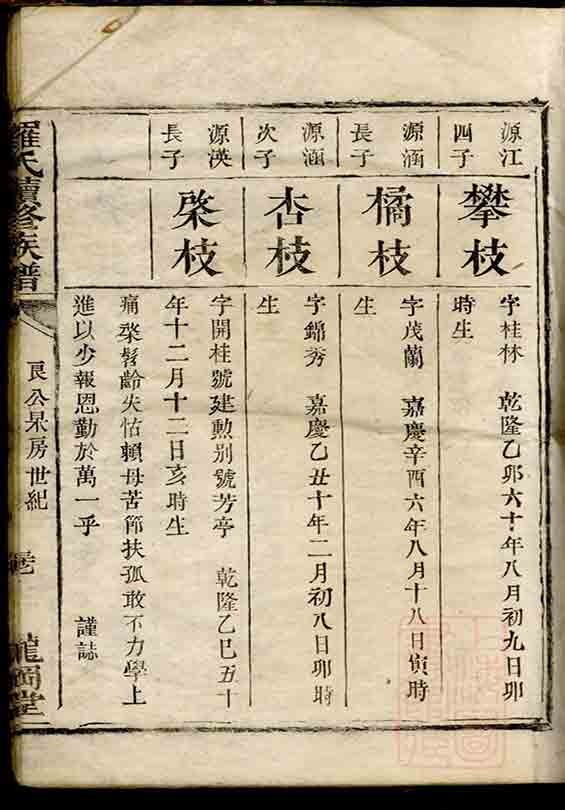 源江
四子
攀枝
字桂林　乾隆乙卯六十年八月初九日卯
時生
源涵
長子
橘枝
字茂蘭　嘉慶辛酉六年八月十八日寅時
生
源涵
次子
杏枝
字錦秀　嘉慶乙丑十年二月初八日卯時
生
源渶
長子
棨枝
字開桂號建勲別號芳亭　乾隆乙巳五十
年十二月十二日亥時生
痛棨髫齡失怙賴母苦節扶孤敢不力學上
進以少報恩勤於萬一乎　　謹誌
羅氏續修族譜
良公杲房世紀